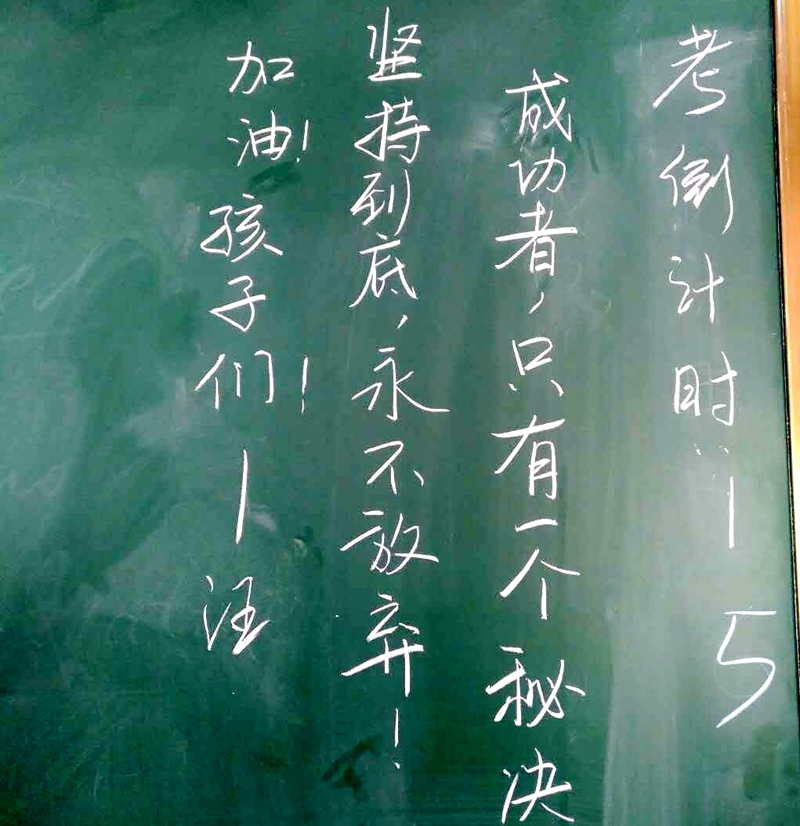 考倒计时"—5
成功者,只有一个秘决
坚持到底,永不放弃!
加油!孩子们!—汪